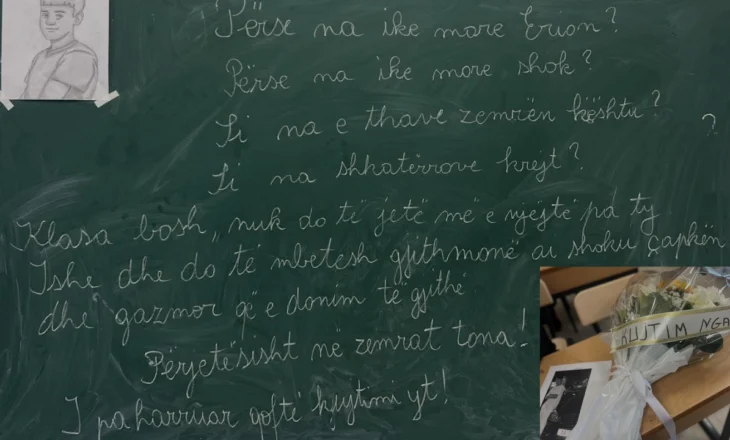 Përse na ike more Erion?
Përse na ike more shok?
Si na e thave zemrën kështu?
?
Si na shkatërrove krejt?
Klasa bosh,, nuk do të jetë më e njëjtë pa ty
Ishe dhe do të mbetesh gjithmonë ai shoku çapkën
dhe gazmor që e donim të gjithë
Përjetësisht në zemrat tona!
I paharruar qoftë kujtimi yt!
KUJTIM NGA